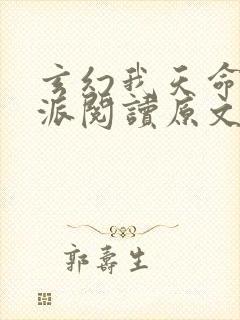 玄幻我天命
派閱讀原文
郭壽生